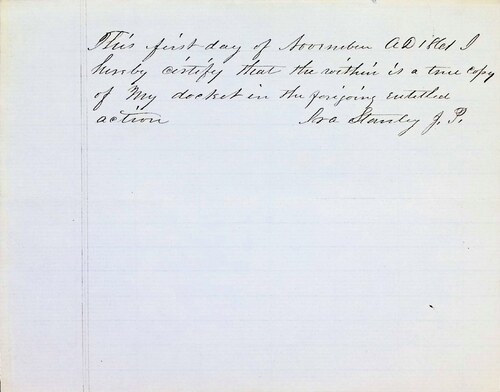 This first day of November A D 1861 I
hereby certify that the within is a true copy
of My docket in the forgoing entitled
action Ira Stanley J. P.